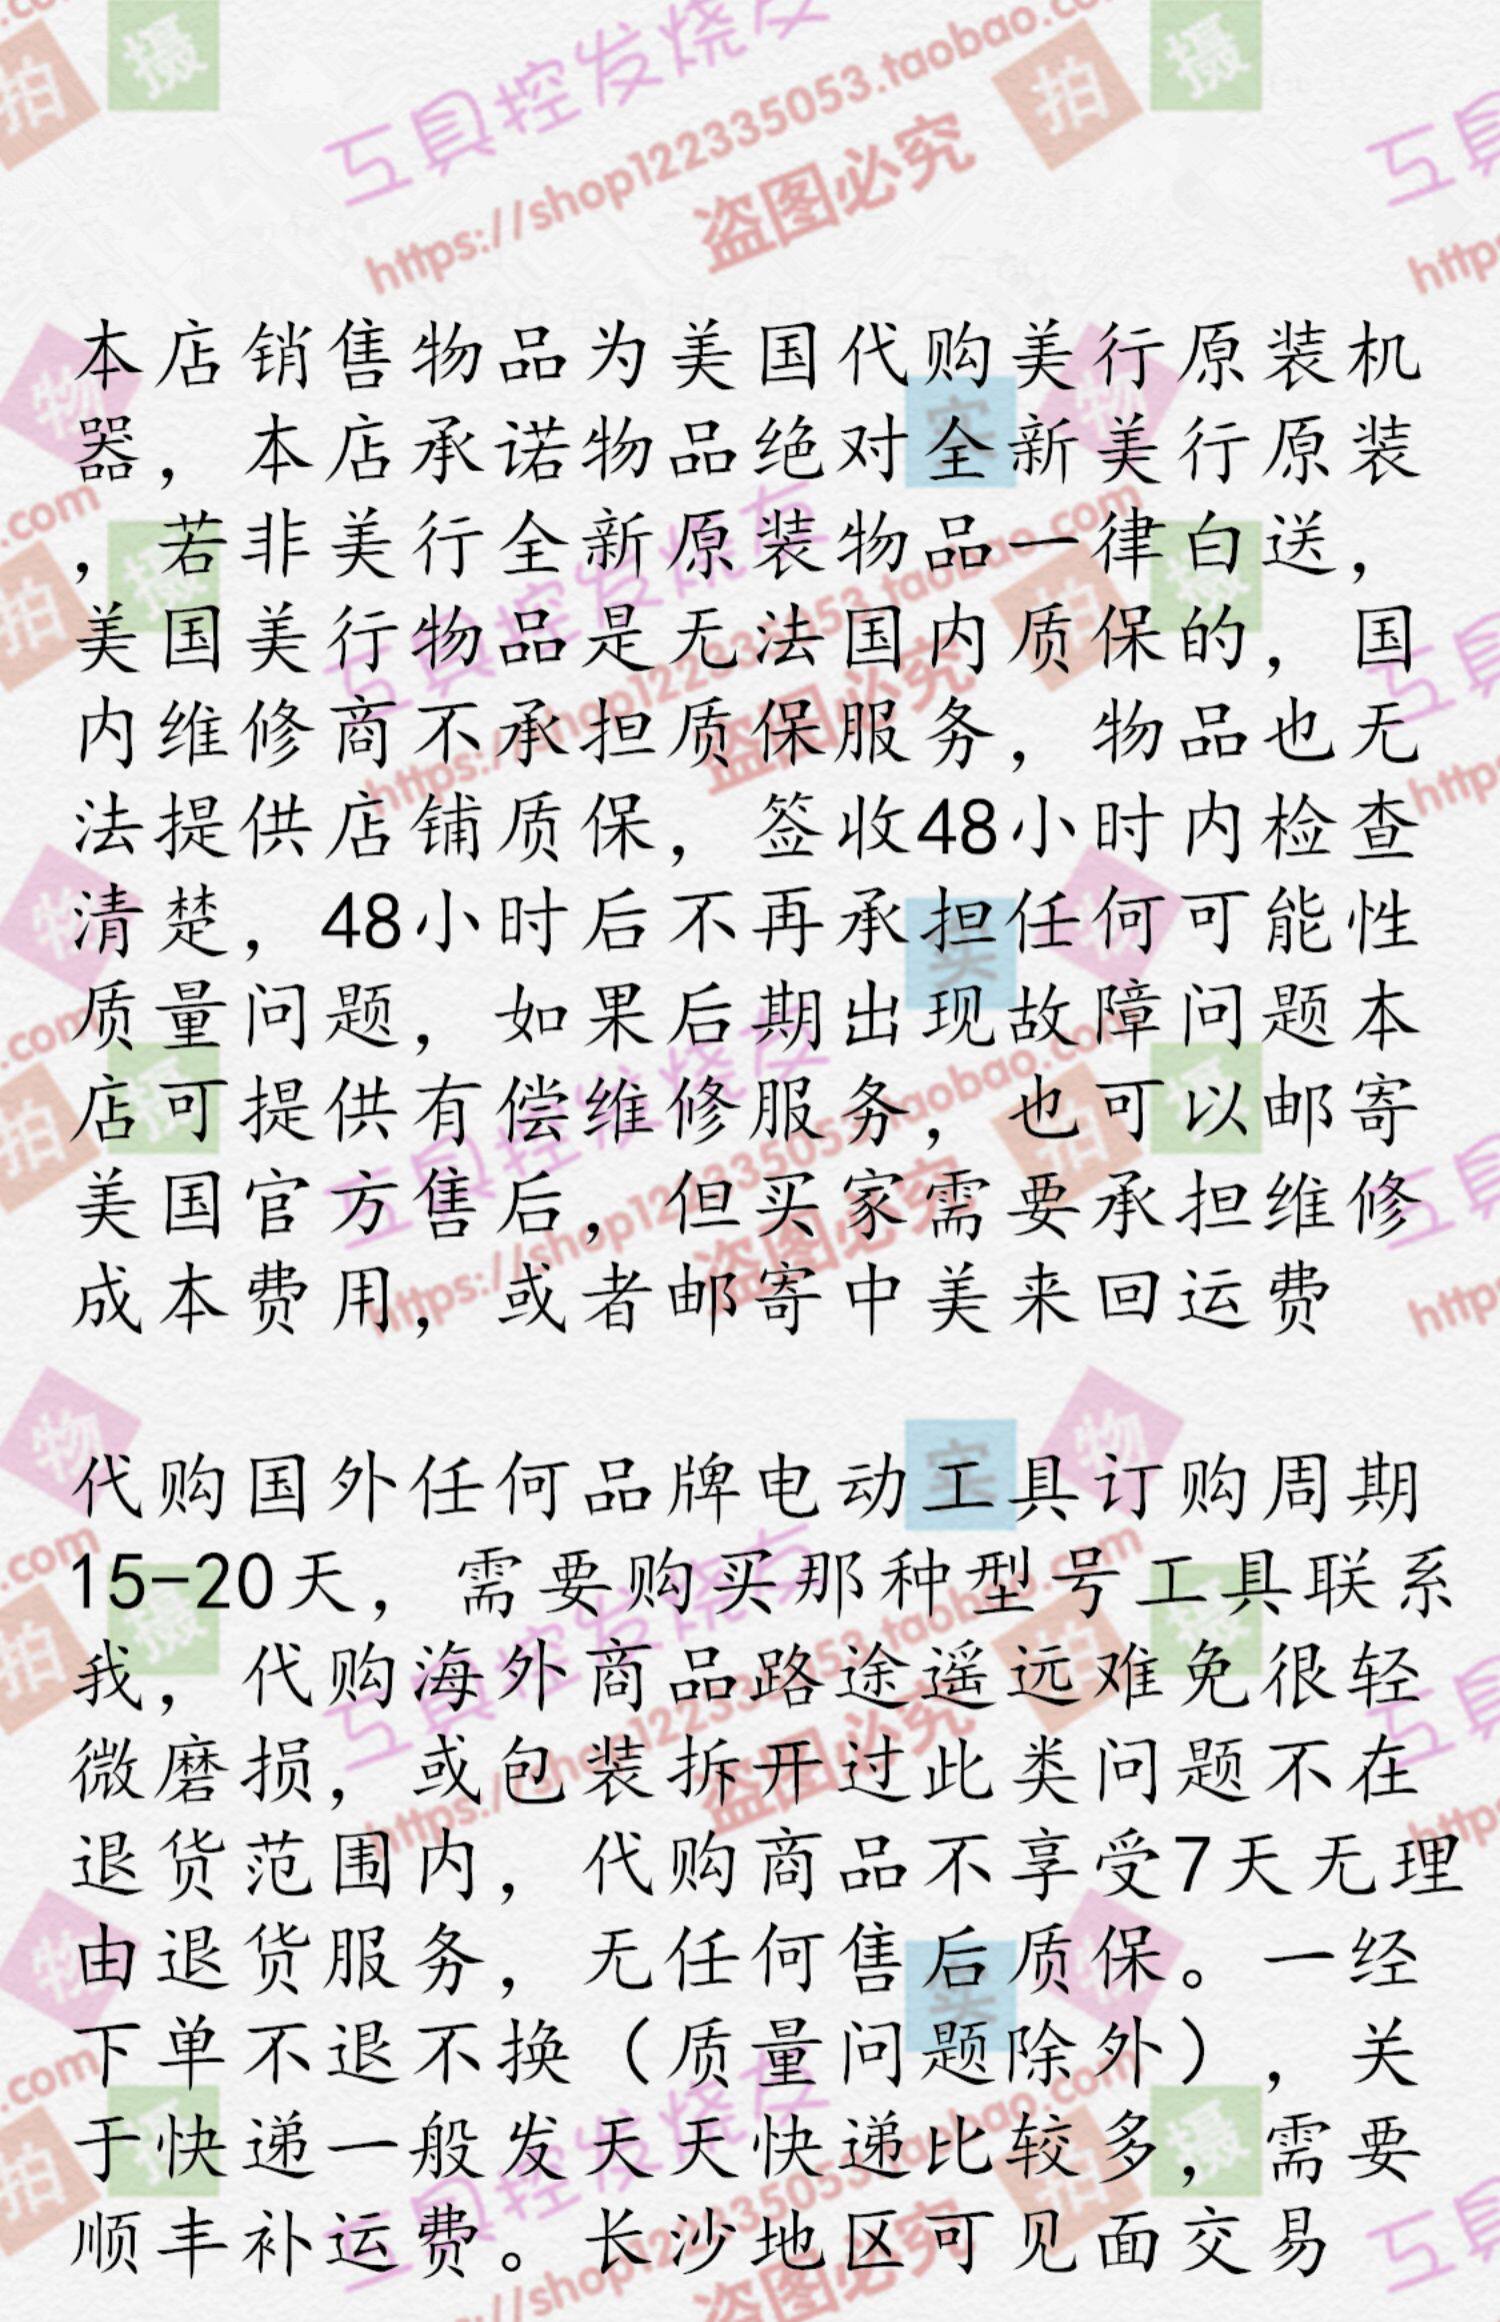 工具控发烧友
https://shop122335053.taobao.com
盗图必究
实物拍摄
本店销售物品为美国代购美行原装机
器，本店承诺物品绝对全新美行原装
，若非美行全新原装物品一律白送，
美国美行物品是无法国内质保的，国
内维修商不承担质保服务，物品也无
法提供店铺质保，签收48小时内检查
清楚，48小时后不再承担任何可能性
质量问题，如果后期出现故障问题本
店可提供有偿维修服务，也可以邮寄
美国官方售后，但买家需要承担维修
成本费用，或者邮寄中美来回运费
代购国外任何品牌电动工具订购周期
15-20天，需要购买那种型号工具联系
我，代购海外商品路途遥远难免很轻
微磨损，或包装拆开过此类问题不在
退货范围内，代购商品不享受7天无理
由退货服务，无任何售后质保。一经
下单不退不换（质量问题除外），关
于快递一般发天天快递比较多，需要
顺丰补运费。长沙地区可见面交易